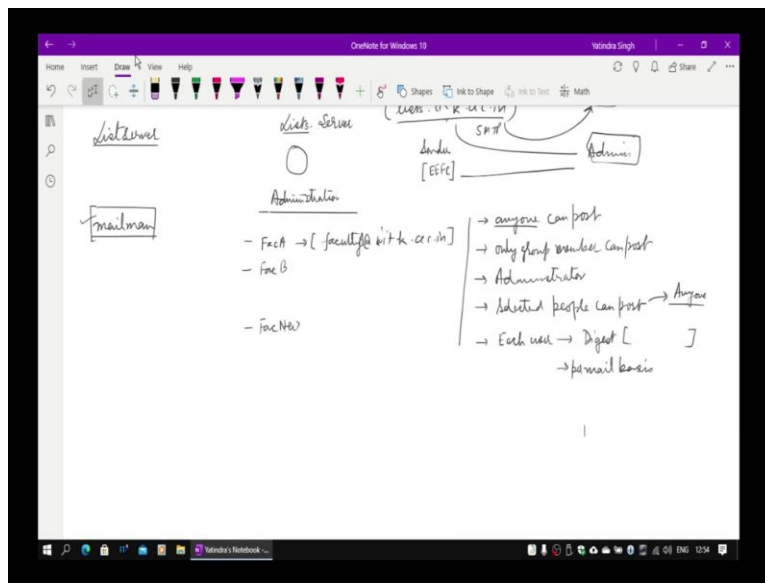 OneNote for Windows 10
Yatindra Singh
Home Insert Draw View Help
Share
Shapes Ink to Shape Ink to Text Math
ListServer
Lists. Server
SMTP
Sender
Admin
[EEFC]
Administration
mailman
- FacA → [faculty@iitk.ac.in]
- Fac B
- Fac New
→ anyone can post
→ only group member can post
→ Administrator
→ Selected people can post → Anyone
→ Each user → Digest [ ]
→ per mail basis
Yatindra's Notebook -...
ENG 12:54